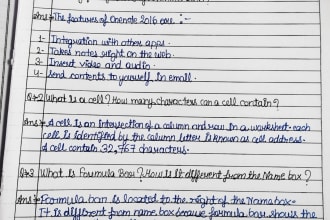 Ans:- The features of Onenote 2016 are :-
1- Integration with other apps.
2- Takes notes right on the web.
3- Insert video and audio.
4- Send contents to yourself in email.
Q+2 What is a cell? How many characters can a cell contain?
Ans:- A cell is an Intersection of a column and row in a worksheet. each
cell is identified by the column letter is known as cell address.
A cell contain 32,767 characters.
Q+3 What is Formula Bar? How is it different from the Name box?
Ans:- Formula bar is located to the right of the Name box.
It is different from name box because formula bar shows the